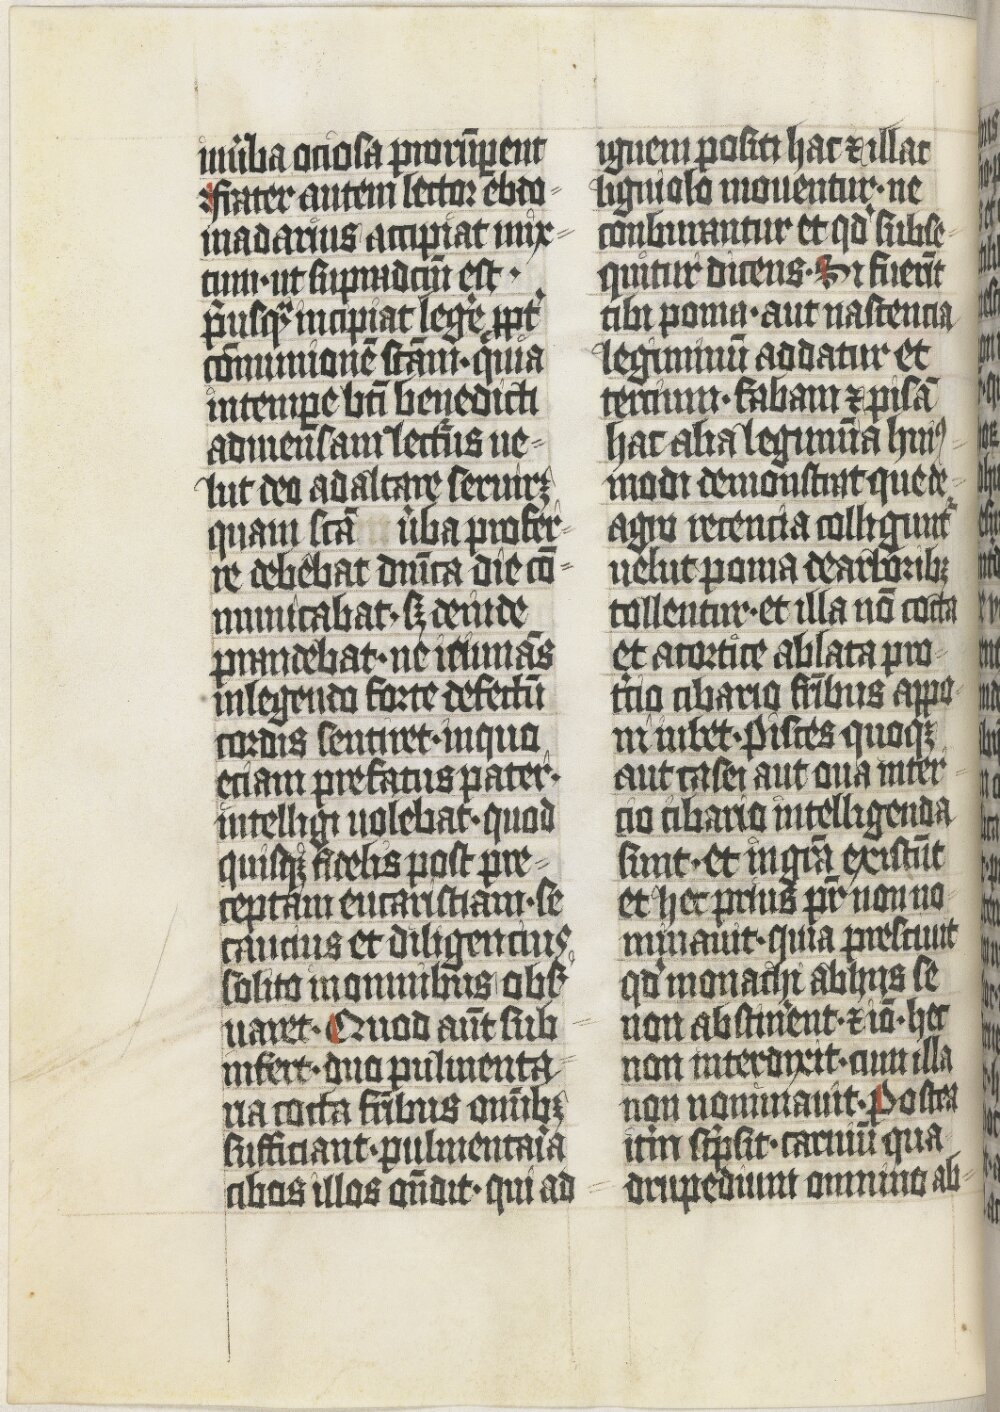 inu̅ba ociosa proru̅pent
Frater autem lector ebdo-
madarius accipiat mix-
tum · ut supradc̅m est ·
p̅usq̅ incipiat lege̅ ppt̅
co̅munione̅ sc̅am · quia
intempe bt̅i benedicti
admensam lectu̅s ue-
lut deo adaltare seruirꝫ
quam sc̅a u̅ba profer-
re debebat dn̅ica die co̅-
municabat · sꝫ deinde
prandebat · ne ieiunās
inlegendo forte defectu̅
cordis sentiret · inquo
eciam prefatus pater ·
intelligi uolebat · quod
quisqꝫ fidelis post pre-
ceptam eucaristiam · se
caucius et diligencius
solito inomnibus obs̅
uaret · Quod aut̅ sub
infert · duo pulmenta
ria cocta fr̅ibus omibꝫ
sufficiant · pulmentaria
cibos illos on̅dit · qui ad
ignem positi hac ⁊ illac
ligniolo mouentur · ne
conburantur et qd̅ subse-
quitur dicens · Si fuerīt
tibi poma · aut nascencia
leguminu̅ addatur et
tercium · fabam ⁊ pisā
hac alia legumina huiꝰ
modi demonstrat que de
agro recencia colligunt̅
uelut poma dearboribꝫ
tollentur · et illa no̅ cocta
et acortice ablata pro
t̅cio cibario fr̅ibus appo-
ni iubet · Pisces quoqꝫ
aut casei aut oua inter-
cio cibario intelligenda
sunt · et ingr̅a existu̅t
et hec prius pr̅ non no-
minauit · quia presciuit
qd̅ monachi abhiis se
non abstinent · ⁊ io̅ · hec
non interdixit · cum illa
non nominauit · Postea
itm̅ sc̅psit · carniu̅ qua
drupedium omnino ab-